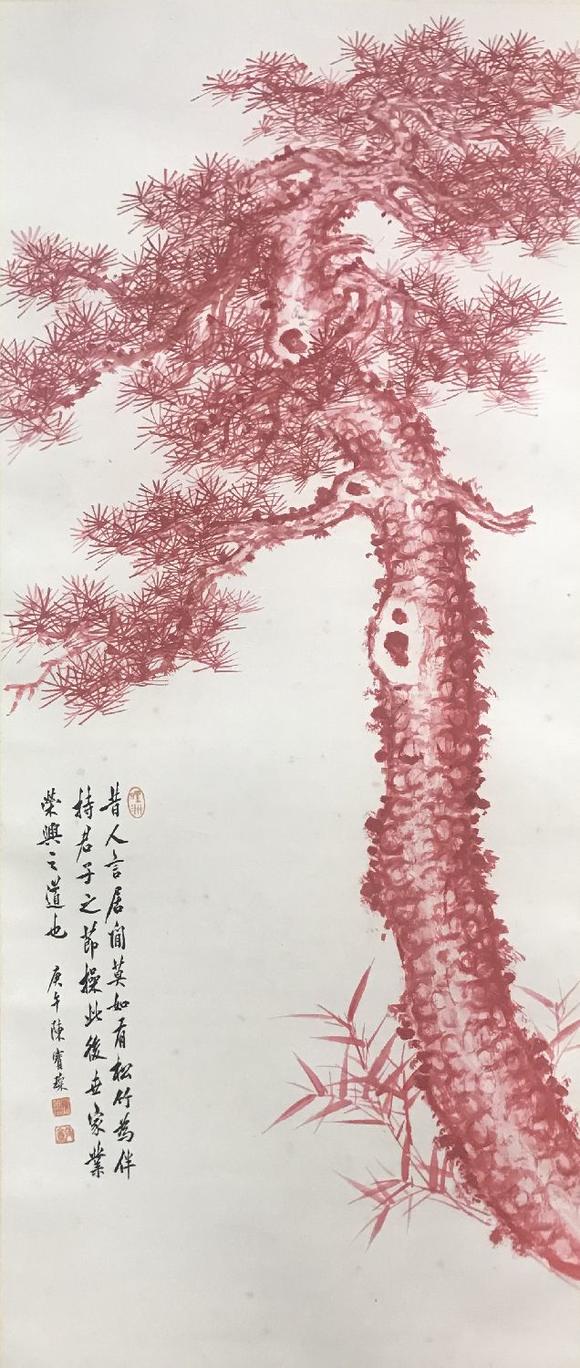 昔人言居閒莫如有松竹為伴
持君子之節操此後世家業
榮興之道也 庚午陳寶琛